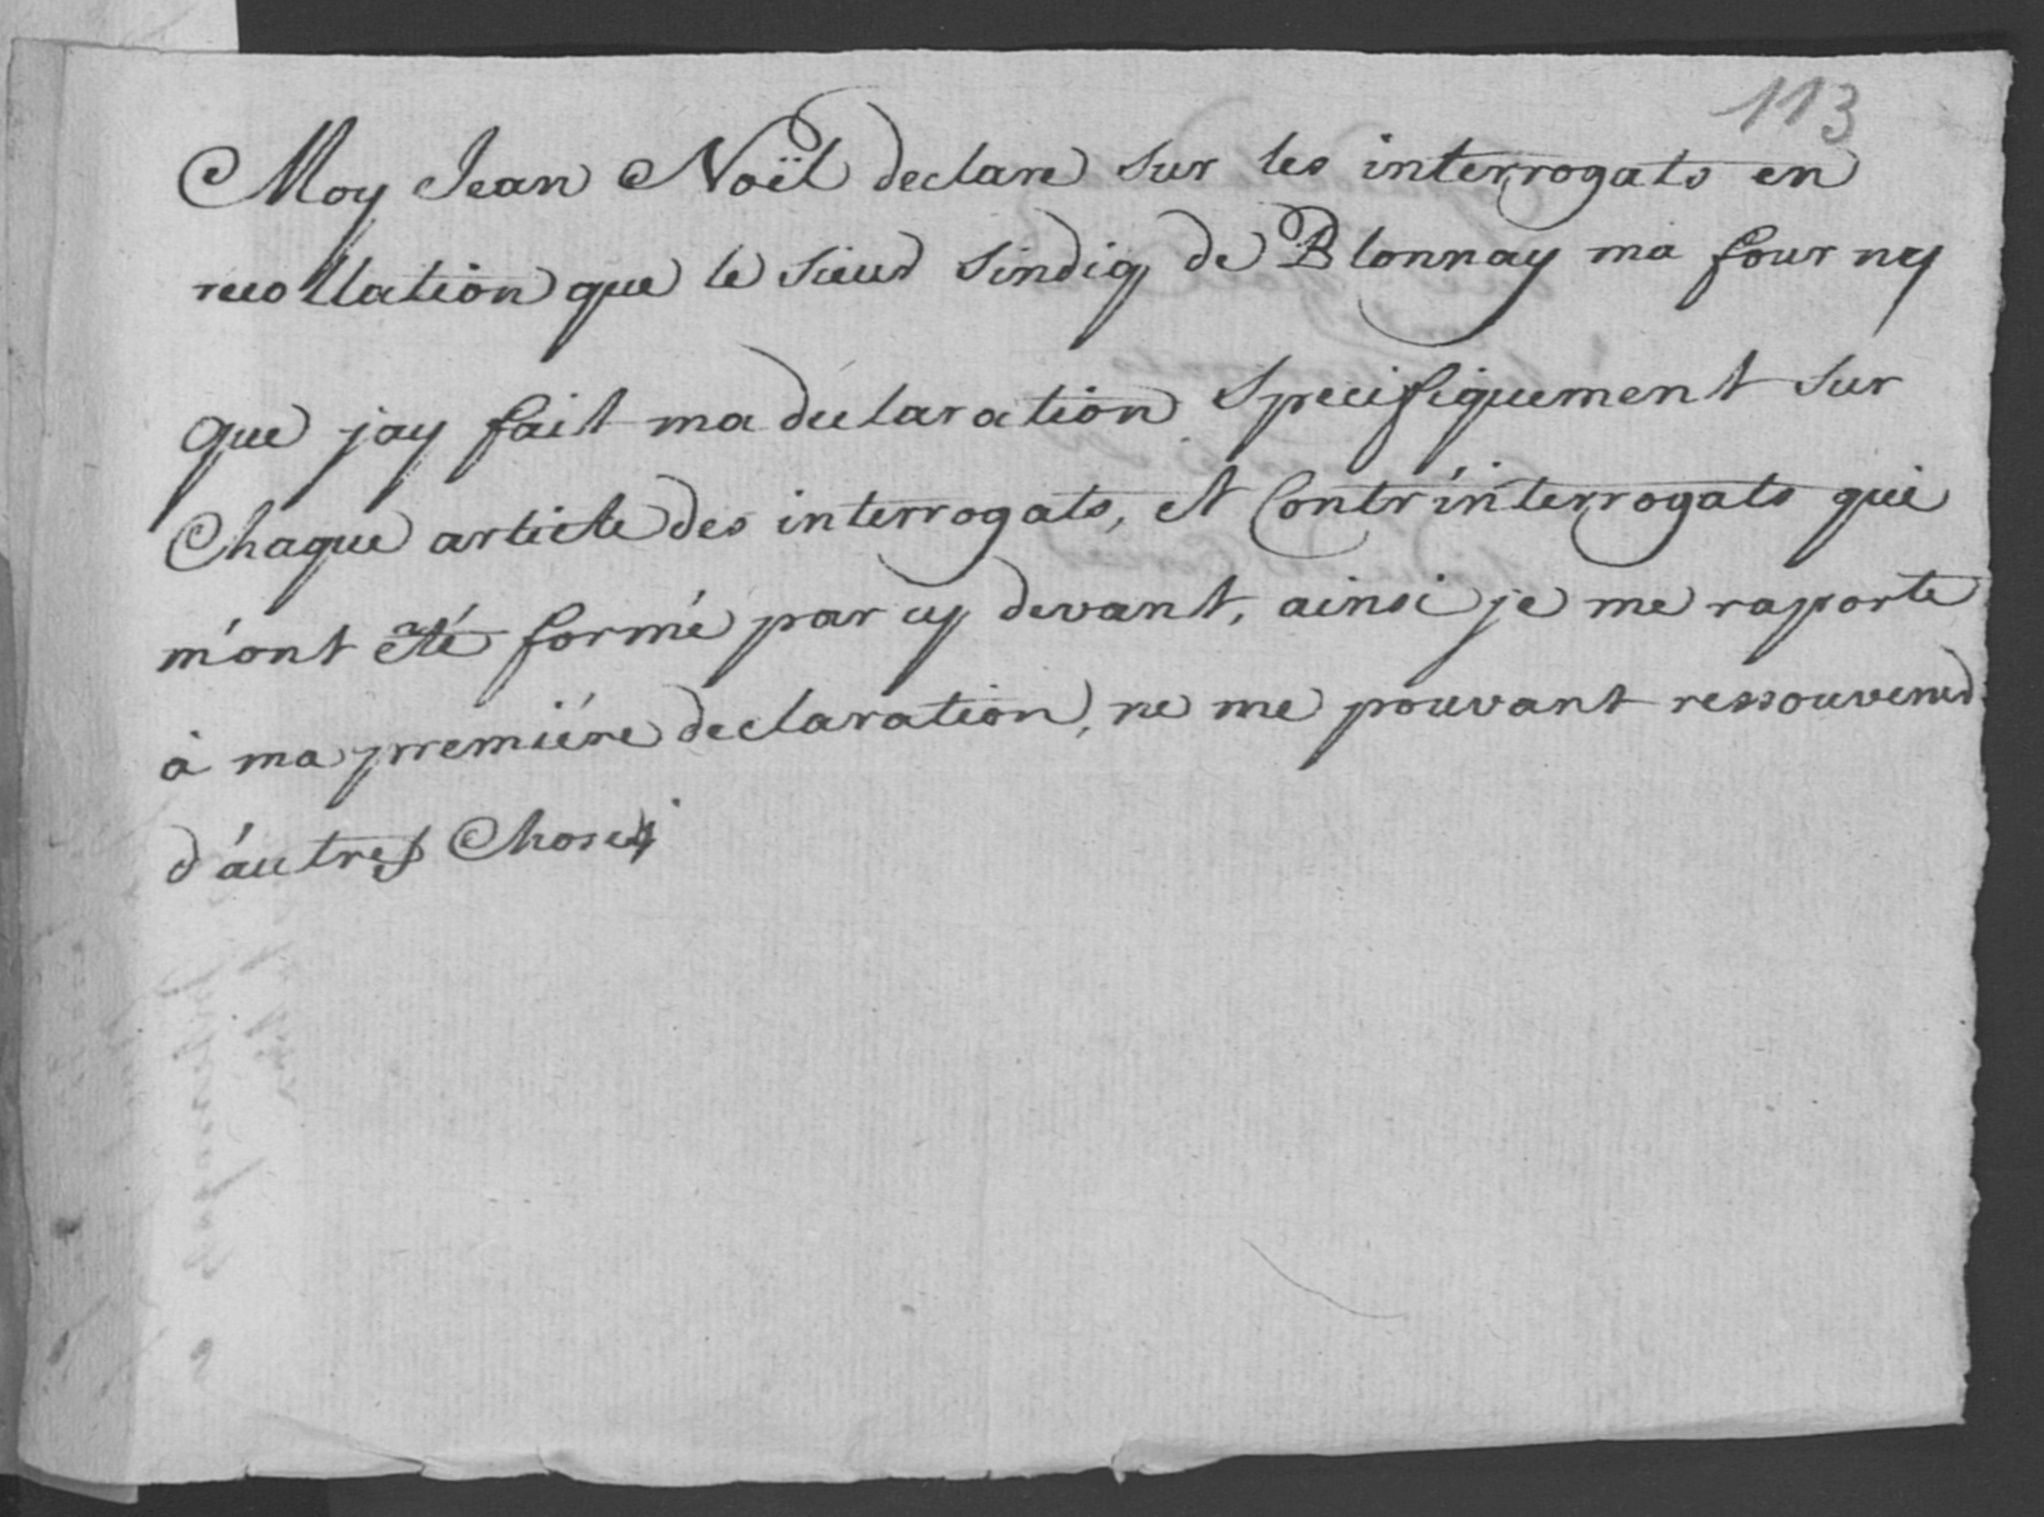 113
Moy Jean Noël declare sur les interrogats en
recollation que le sieur sindiq de Blonnay ma fourny
que jay fait ma declaration specifiquement sur
Chaque article des interrogats, et Contr'interrogats qui
m'ont été formé par cy devant, ainsi je me raporte
à ma premiére declaration, ne me pouvant ressouvenir
d'autres Choses